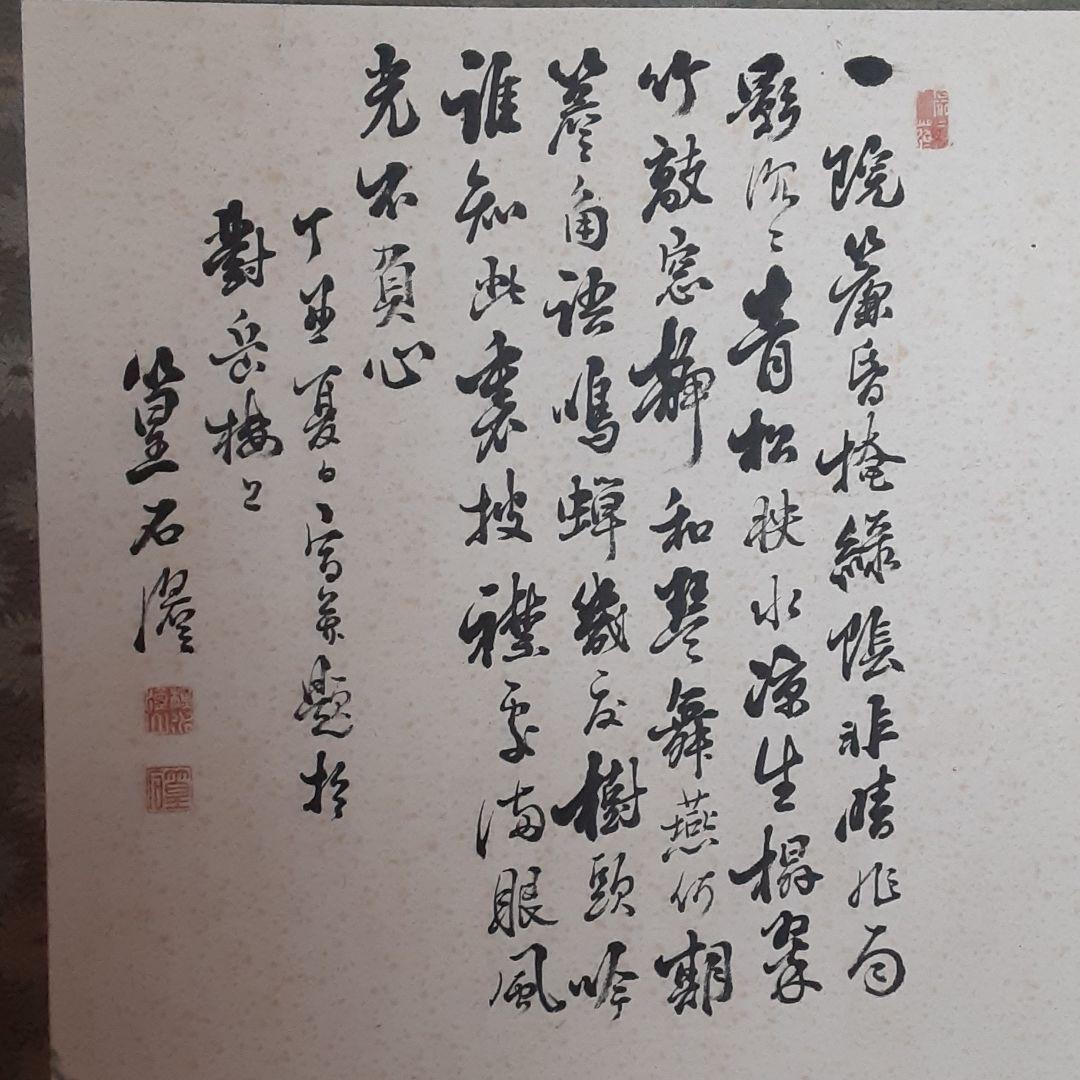 一院簾昏掩綠陰非晴非雨
影沉〻青松映水凉生榻翠
竹敲窓靜和琴舞燕何期
簷角語鳴蟬幾度樹頭吟
誰知此裏披襟處滿眼風
光不負心
丁丑夏日寫并題於
對岳樓上
篁石澄